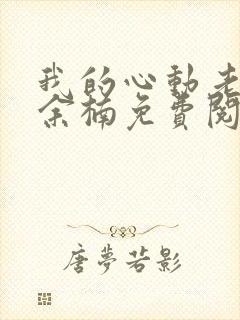 我的心動老
余楠免費閱
唐夢若影